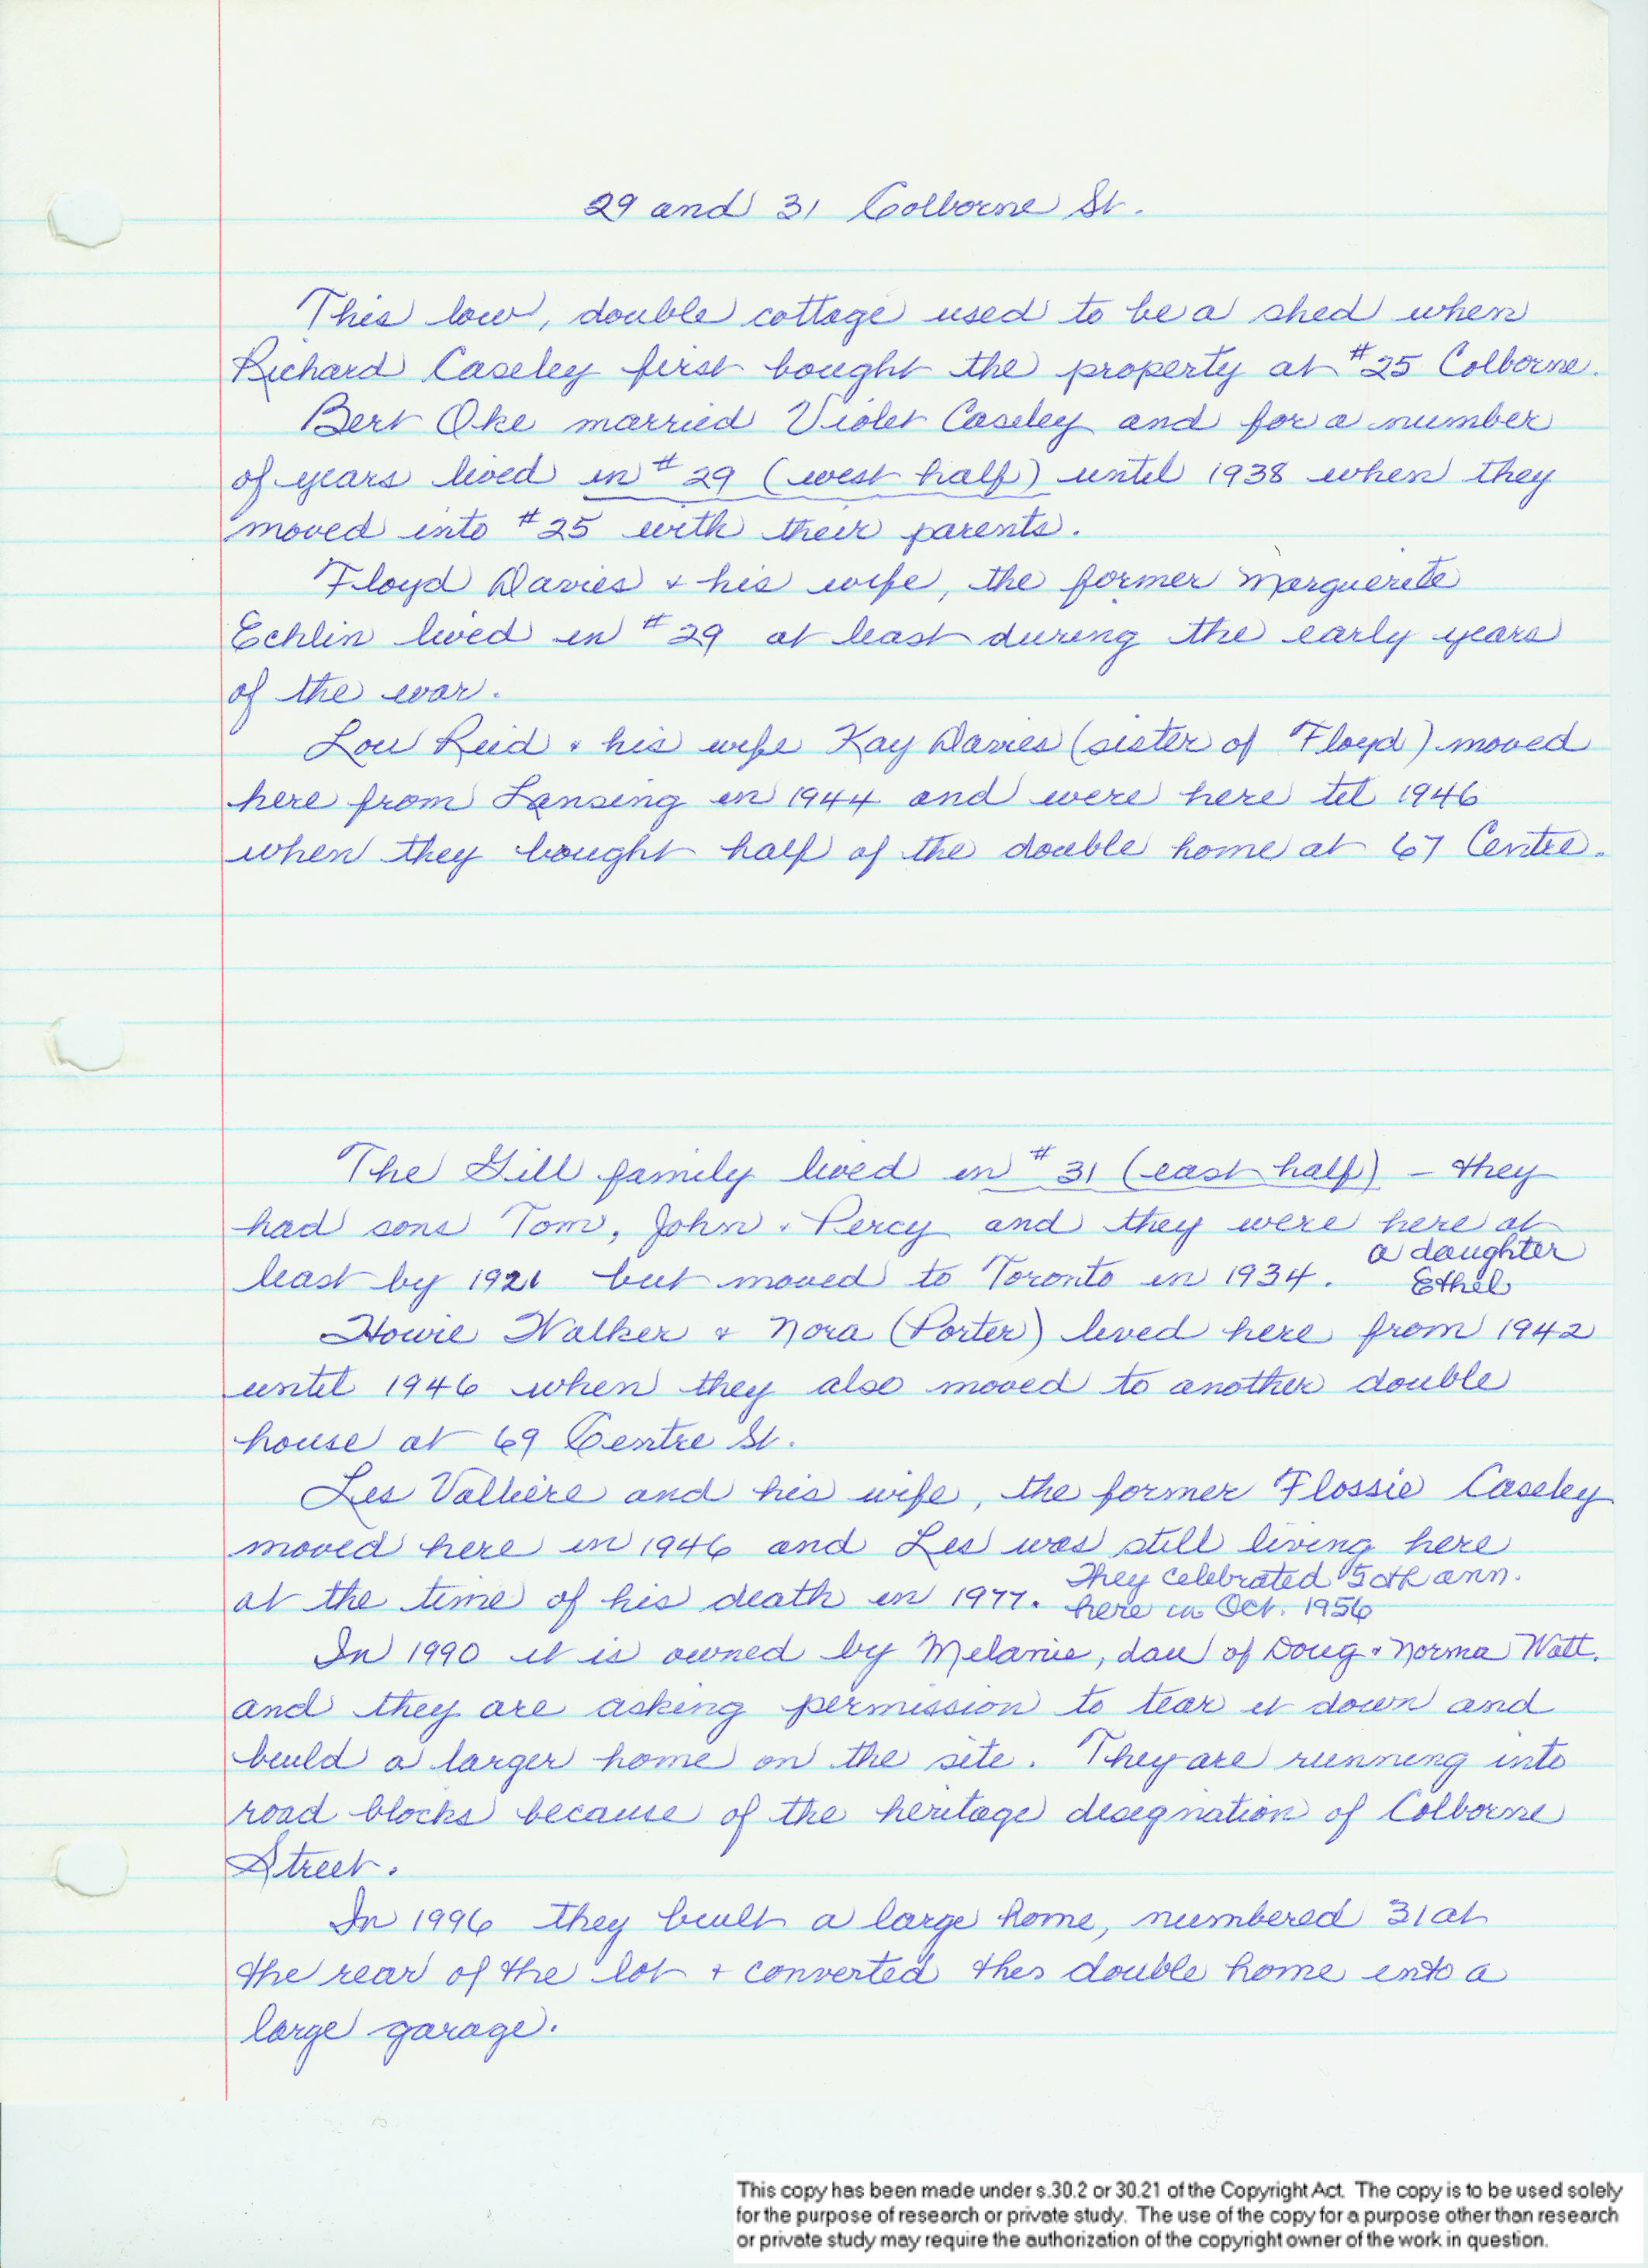 29 and 31 Colborne St.
This low, double cottage used to be a shed when
Richard Caseley first bought the property at #25 Colborne.
Bert Oke married Violet Caseley and for a number
of years lived in #29 (west half) until 1938 when they
moved into #25 with their parents.
Floyd Davies + his wife, the former Marguerite
Echlin lived in #29 at least during the early years
of the war.
Lou Reid + his wife Kay Davies (sister of Floyd) moved
here from Lansing in 1944 and were here til 1946
when they bought half of the double home at 67 Centre.
The Gill family lived in #31 (east half) - they
had sons Tom, John + Percy and they were here at
least by 1921 but moved to Toronto in 1934. a daughter
Ethel
Howie Walker + Nora (Porter) lived here from 1942
until 1946 when they also moved to another double
house at 69 Centre St.
Les Valliere and his wife, the former Flossie Caseley
moved here in 1946 and Les was still living here
at the time of his death in 1977. They celebrated 50th ann.
here in Oct. 1956
In 1990 it is owned by Melanie, dau of Doug + Norma Watt.
and they are asking permission to tear it down and
build a larger home on the site. They are running into
road blocks because of the heritage designation of Colborne
Street.
In 1996 they built a large home, numbered 31 at
the rear of the lot + converted this double home into a
large garage.
This copy has been made under s.30.2 or 30.21 of the Copyright Act. The copy is to be used solely
for the purpose of research or private study. The use of the copy for a purpose other than research
or private study may require the authorization of the copyright owner of the work in question.